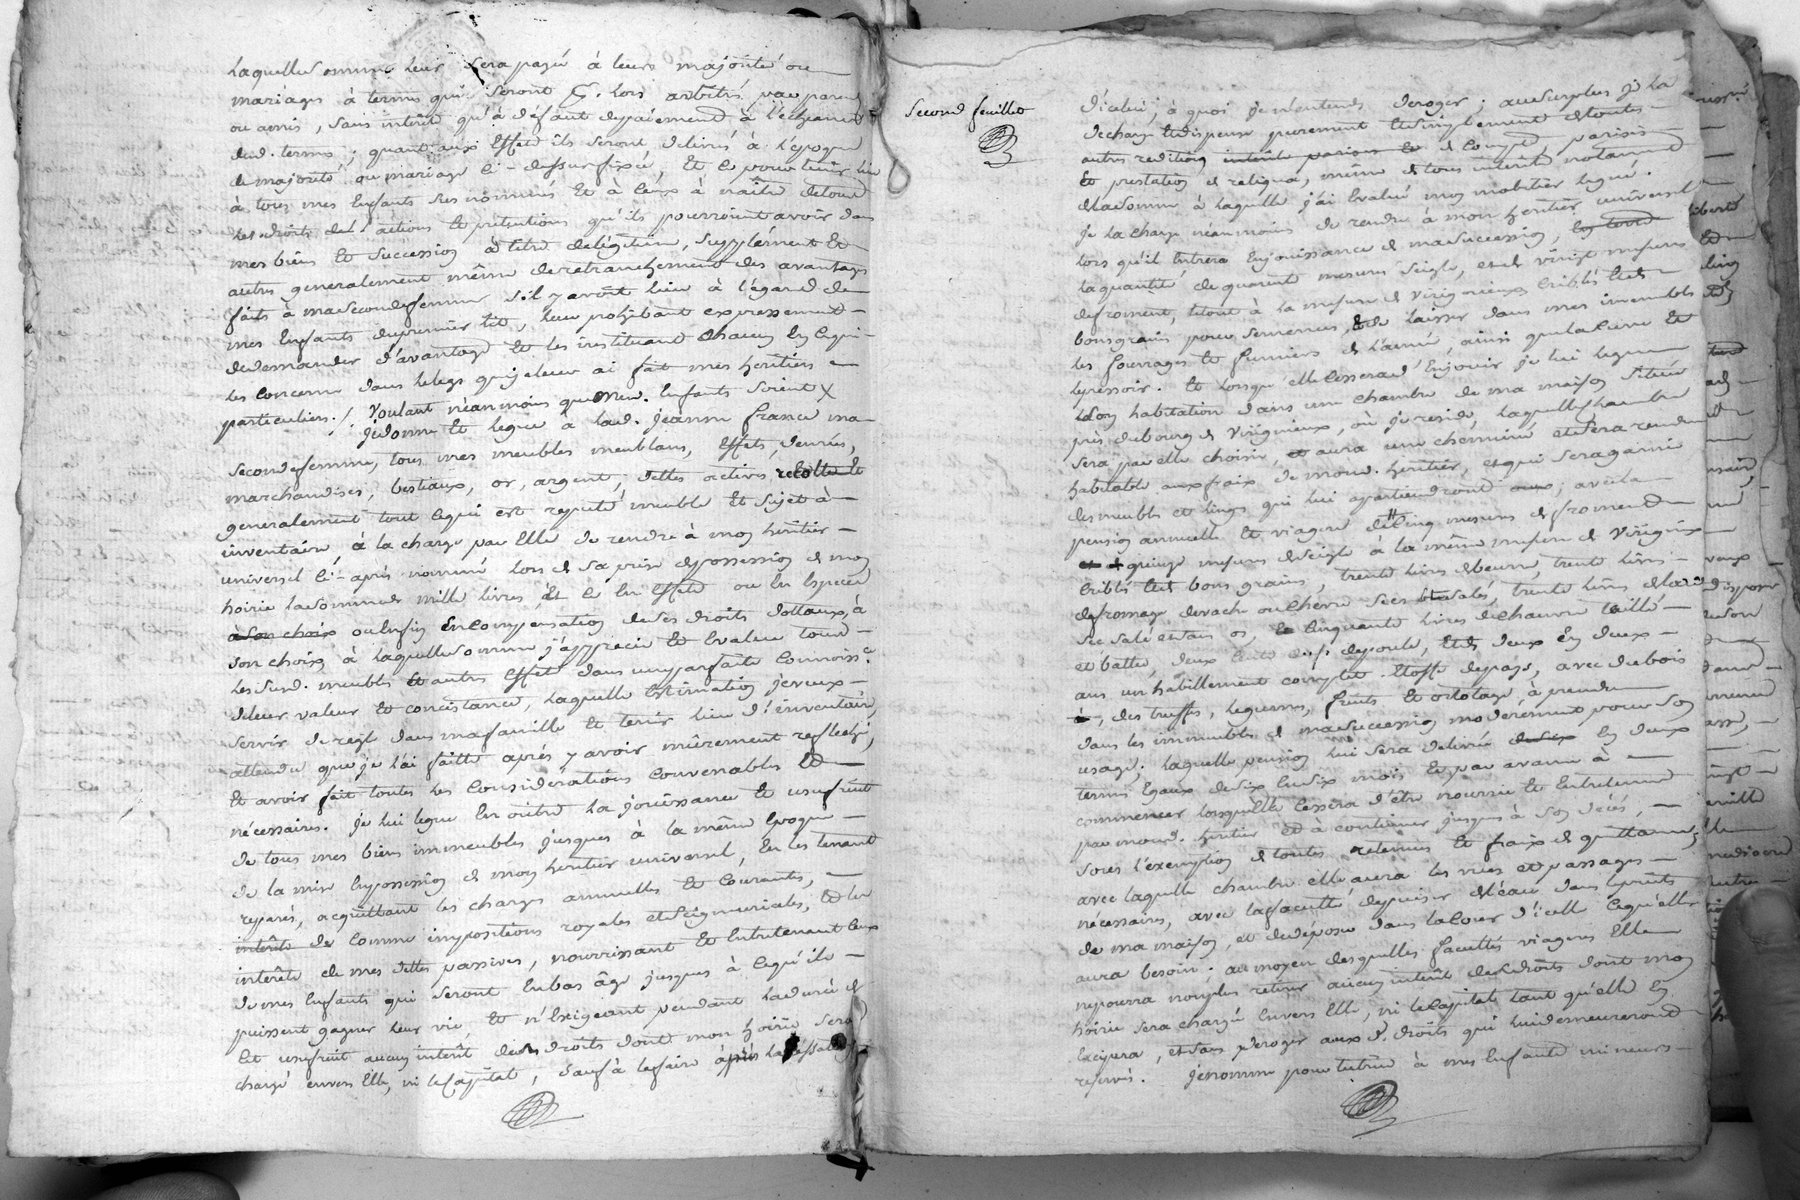 laquelle somme leur sera payée à leurs majorité ou
mariages à termes qui seront lors arbitrés par parens
ou amis, sans interêt qu'à défaut de paiement à l'écheance
desd. termes; quant aux Effets ils seront delivrés à l'époque
de majorité ou mariage ci-dessus fixée, Et ce pour tenir lieu
à tous mes Enfants sus nommés Et à Ceux à naître de tous
les droits actions Et prétentions qu'ils pourroient avoir dans
mes biens Et Succession à titre de légitime, Supplément Et
autres generalement même de retranchement des avantages
faits à ma seconde femme s'il y avoit lieu à l'égard de
mes Enfants du premier lit, leur prohibant expressement
de demander d'avantage Et les instituant Chacun En ce qui
les Concerne dans le legs que je leur ai fait mes heritiers
particuliers ./. Voulant néanmoins que Enfants Soient X
je donne Et legue à lad. jeanne france ma
seconde femme, tous mes meubles meublans, Effets, denrées,
marchandises, bestiaux, or, argent, dettes actives recolte Et
generalement tout ce qui est reputé meuble Et sujet à
inventaire, à la charge par Elle de rendre à mon héritier
universel ci-après nommé lors de sa prise de possession de mon
hoirie la somme de mille livres, Et ce En Effets ou En Espèces
à son choix ou Enfin En Compensation de ses droits dottaux, à
son choix, à laquelle somme j'apprecie Et Evalue tous
les susd. meubles Et autres Effets dans une parfaite Connoiss.ce
de leur valeur Et consistance, laquelle Estimation je veux
servir de regle dans ma famille Et tenir lieu d'inventaire,
attendu que je l'ai faitte après y avoir mûrement reflechi,
Et avoir fait toutes les Considérations Convenables Et
nécessaires. je lui legue En outre la jouissance Et usufruit
de tous mes biens immeubles jusques à la même Epoque
de la mise En possession de mon heritier universel, En les tenant
reparés, acquittant les charges annuelles Et Courantes,
interêts de Comme impositions royales et Seigneuriales, Et les
interêts de mes dettes passives, nourrissant Et Entretenant Ceux
de mes Enfants qui seront En bas âge jusques à ce qu'ils
puissent gagner leur vie, Et n'Exigeant pendant la durée de
Cet usufruit aucun interêt des droits dont mon hoirie sera
chargé envers Elle, ni le Capital, sauf à le faire après la cessation
Second feuillet
d'icelui, à quoi je n'entends deroger; au surplus je la
decharge Et dispense purement Et simplement de toutes
autres redition interêts parisis Et de Compte, parisis
Et prestation de reliqua, même de tous interêts notamment
de la somme à laquelle j'ai Evalué mon mobilier legué.
je la charge néanmoins de rendre à mon heritier universel
lors qu'il Entrera En jouissance de ma succession,
la quantité de quarente mesures seigle, et de vingt mesures
de froment, le tout à la mesure de Virigneux, criblés Et de
bons grains pour semences, Et de laisser dans mes immeubles
les fourrages Et fumiers de l'année, ainsi que la Cuve Et
le pressoir. Et lorsqu'elle Cessera d'En jouir je lui legue
son habitation dans une chambre de ma maison située
près du bourg de Virigneux, où je reside, laquelle chambre
sera par elle choisie, et aura une chéminée et sera rendue
habitable aux frais de mond. héritier, et qui sera garnie
des meubles et linges qui lui apartiendront; avec la
pension annuelle Et viagere de cinq mesures de froment
quinze mesures de seigle à la même mesure de Virigneux
criblés Et de bons grains, trente livres de beurre, trente livres
de fromage de vache ou chevre secs Et salés, trente livres de lard
sec salé et sans os, cinquante livres de chanvre taillé
et battu, deux Cents œufs de poule, Et de deux En deux
ans un habillement complet étoffe de pays, avec du bois
des truffes, legumes, fruits Et ortolage, à prendre
dans les immeubles de ma succession modérément pour son
usage; laquelle pension lui sera delivrée En deux
termes Egaux de six En six mois Et par avance à
commencer lorsqu'elle Cessera d'être nourrie Et Entretenue
par mond. heritier Et à continuer jusques à son décès,
sous l'exemption de toutes retenues Et fraix de quittance;
avec laquelle chambre elle aura les vues et passages
nécessaires, avec la faculté de puiser de l'eau dans le puits
de ma maison, et de deposer dans la Cour d'icelle ce qu'elle
aura besoin. au moyen desquelles facultés viageres Elle
ne pourra non plus retirer aucun interêt des droits dont mon
hoirie sera chargée Envers Elle, ni le Capital tant qu'elle En
jouira, et sans deroger aux d. droits qui lui demeureront
reservés. je nomme pour tutrice à mes Enfants mineurs